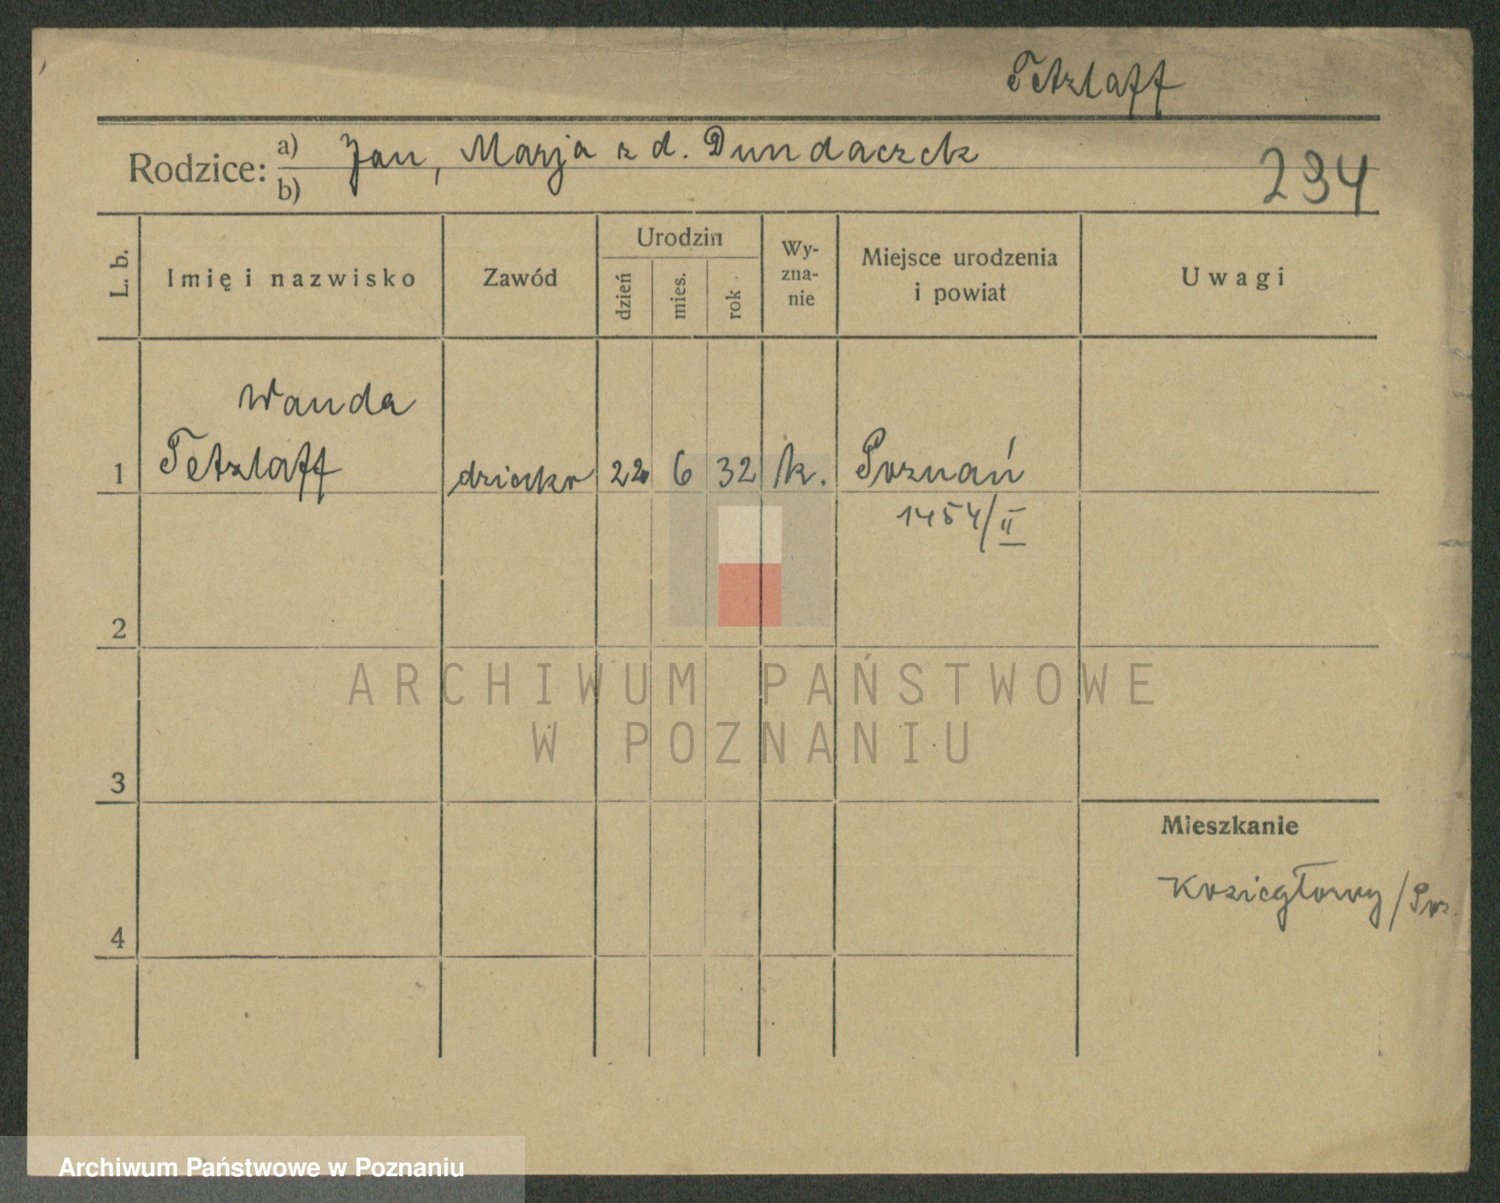 Tetzlaff
Rodzice: a) Jan, Marja z d. Dundaczek
b)
234
L. b.
Imię i nazwisko
Zawód
Urodzin
dzień
mies.
rok
Wy-
zna-
nie
Miejsce urodzenia
i powiat
Uwagi
Wanda
1 Tetzlaff dziecko 22 6 32 k. Poznań
1454/II
2
3
4
Mieszkanie
Koziegłowy/Poz.
ARCHIWUM PAŃSTWOWE
W POZNANIU
Archiwum Państwowe w Poznaniu